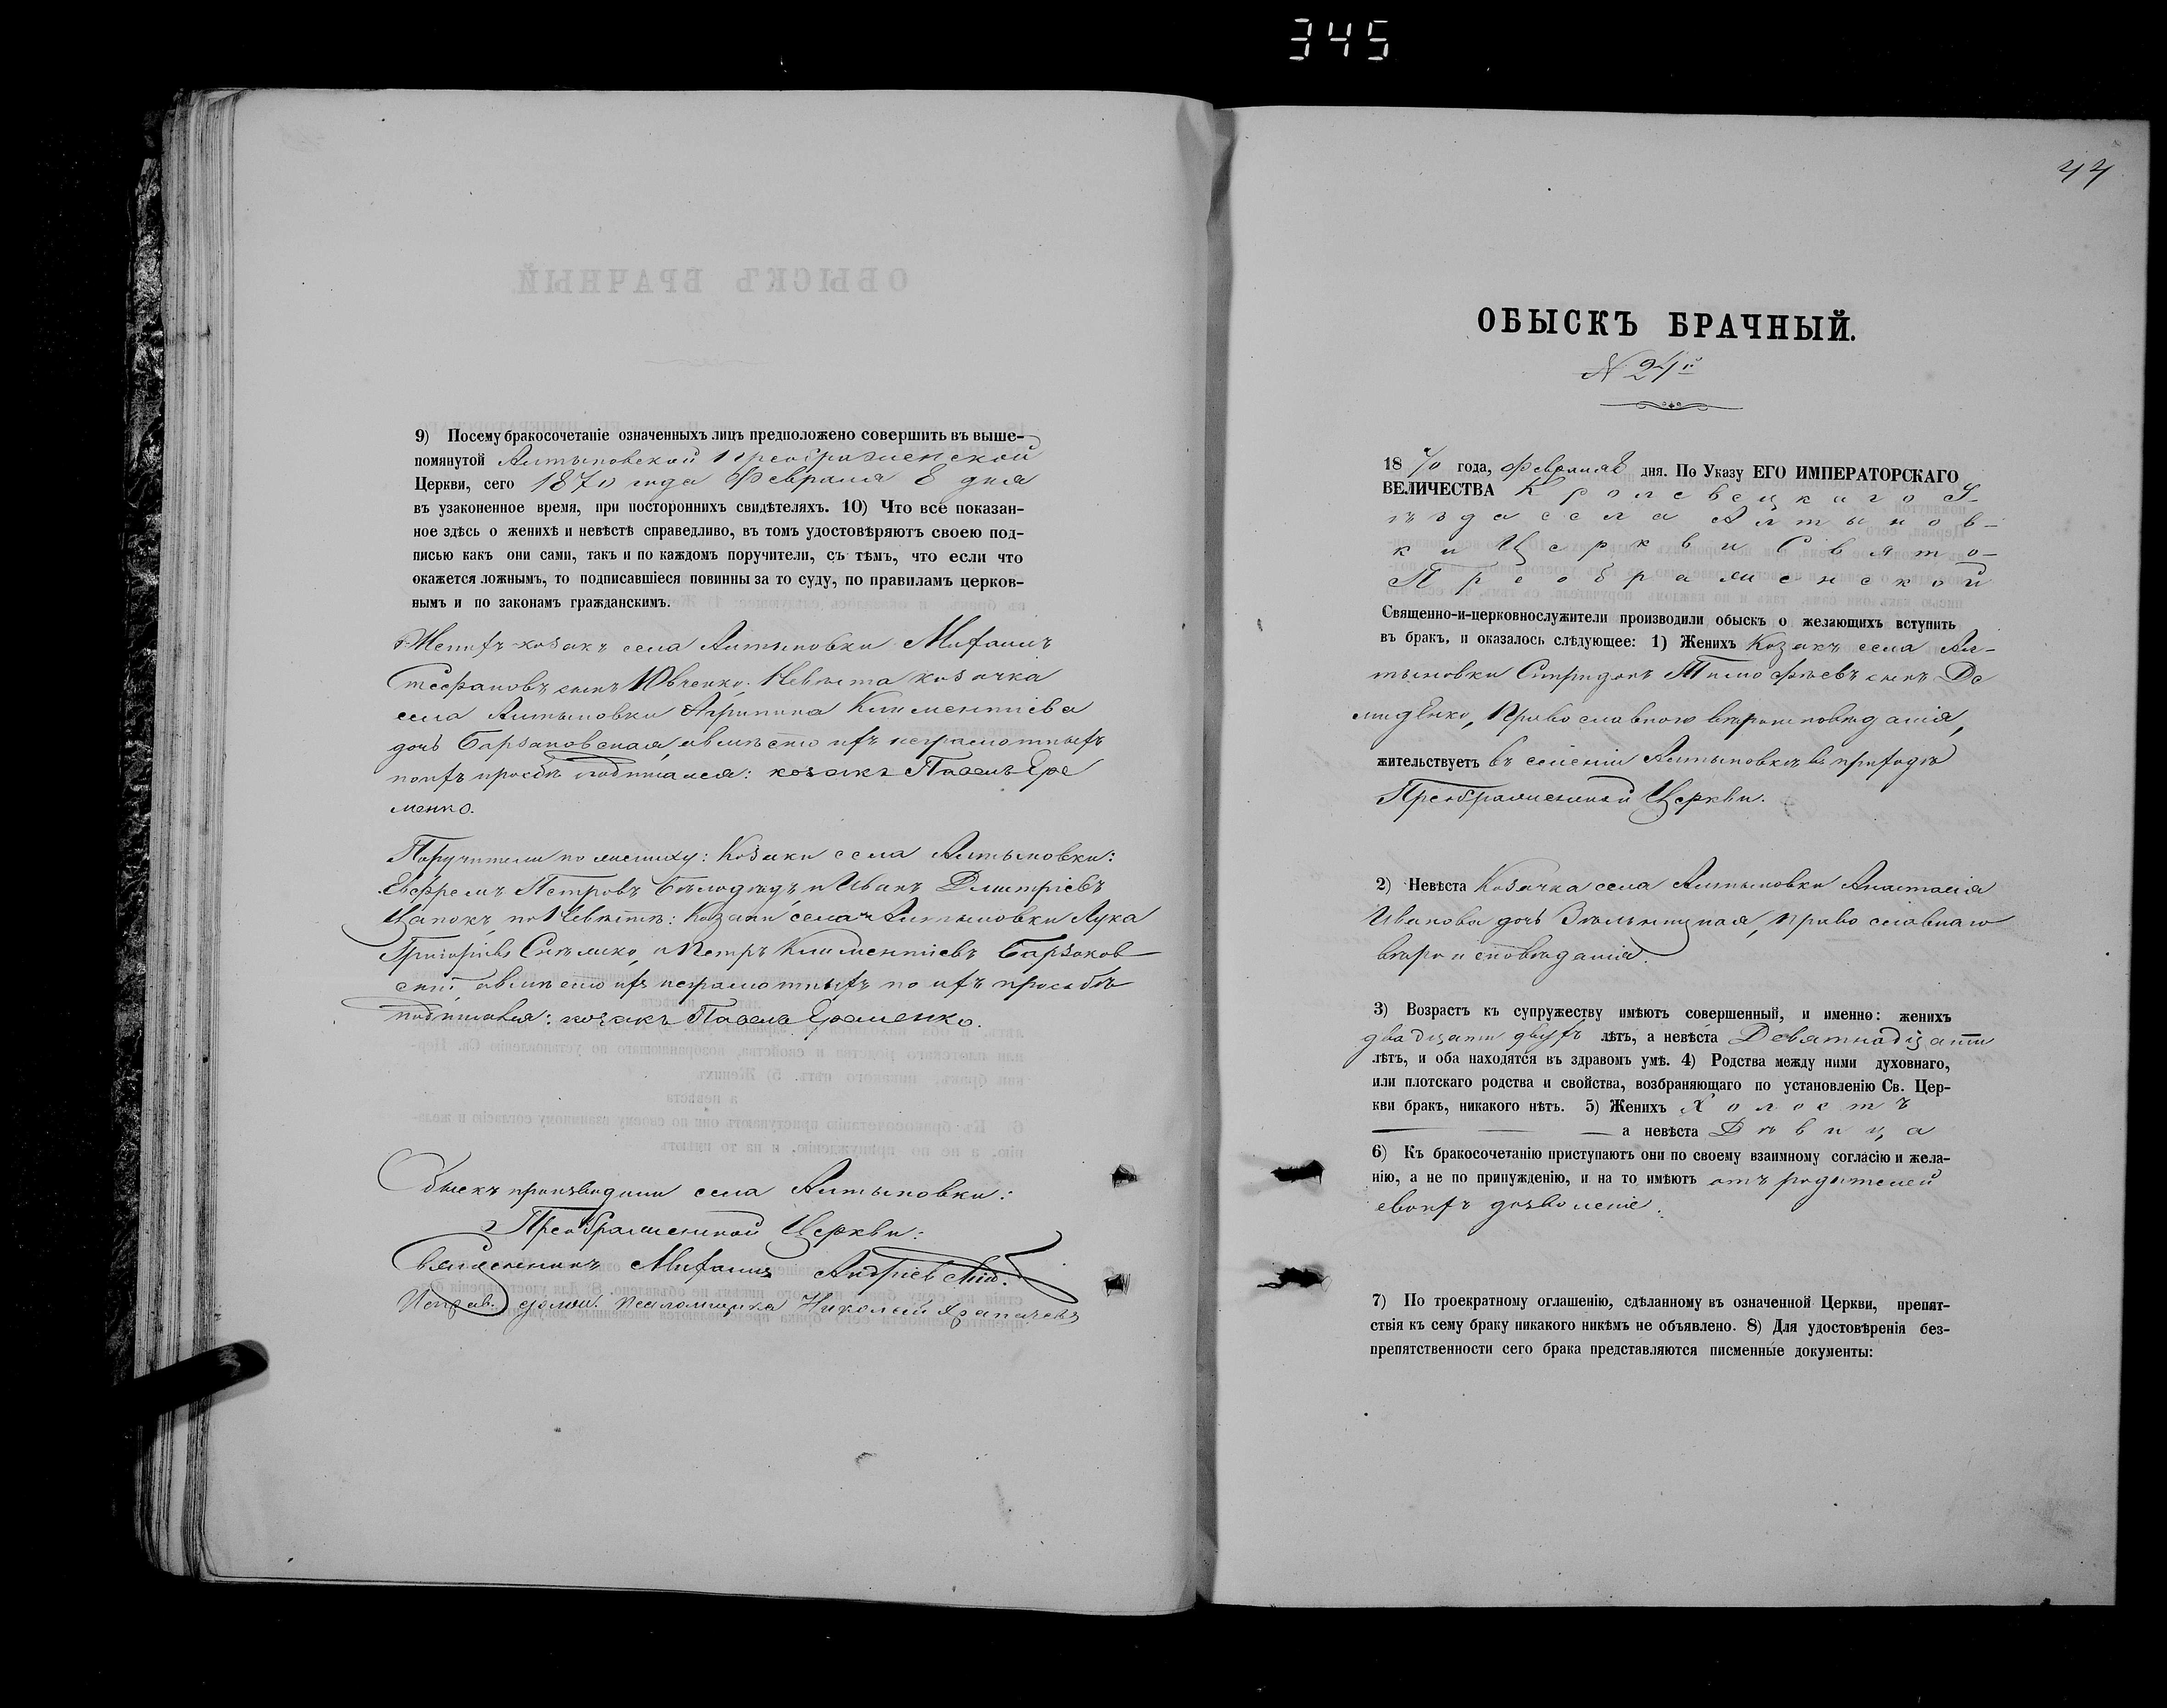 345
9) Посему бракосочетаніе означенныхъ лицъ предположено совершить въ выше-
помянутой Алтыновской Преображенской
Церкви, сего 1870 года Февраля 8 дня
въ узаконенное время, при постороннихъ свидѣтеляхъ. 10) Что все показан-
ное здѣсь о женихѣ и невѣстѣ справедливо, въ томъ удостовѣряютъ своею под-
писью какъ они сами, такъ и по каждомъ поручители, съ тѣмъ, что если что
окажется ложнымъ, то подписавшіеся повинны за то суду, по правиламъ церков-
нымъ и по законамъ гражданскимъ.
Женихъ козакъ села Алтыновки Михаилъ
Стефановъ сынъ Ювченко. Невѣста козачка
села Алтыновки Агрипина Климентіева
дочь Барзаковская, а вмѣсто ихъ неграмотныхъ
по ихъ просьбѣ подписался: козакъ Павелъ Ере
менко.
Поручители по жениху: Козаки села Алтыновки:
Ефремъ Петровъ Бѣлодѣдъ и Иванъ Дмитріевъ
Цапокъ, по Невѣстѣ: Козаки села Алтыновки Лука
Григорьевъ и Петръ Климентіевъ Барзаков-
скій а вмѣсто ихъ неграмотныхъ по ихъ просьбѣ
подписался: козакъ Павелъ Еременко.
Обыскъ производили села Алтыновки:
Преображенской Церкви:
Священникъ Михаилъ
Исправ. должн. псаломщика Николай
44
ОБЫСКЪ БРАЧНЫЙ.
N 24й
1870 года, Февраля 8 дня. По Указу ЕГО ИМПЕРАТОРСКАГО
ВЕЛИЧЕСТВА Кролевецкаго У-
ѣзда села Алтынов-
ки Церкви Свято-
Преображенской
Священно-и-церковнослужители производили обыскъ о желающихъ вступить
въ бракъ, и оказалось слѣдующее: 1) Женихъ Козакъ села Ал-
тыновки Спиридонъ Тимофѣевъ сынъ Де
миденко, Православного вѣроисповѣданія,
жительствуетъ въ селеніи Алтыновкѣ въ приходѣ
Преображенской Церкви.
2) Невѣста Козачка села Алтыновки Анастасія
Иванова дочь православнаго
вѣроисповѣданія.
3) Возрастъ къ супружеству имѣютъ совершенный, и именно: женихъ
двадцати двухъ лѣтъ, а невѣста Девятнадцати
лѣтъ, и оба находятся въ здравомъ умѣ. 4) Родства между ними духовнаго,
или плотскаго родства и свойства, возбраняющаго по установленію Св. Цер-
кви бракъ, никакого нѣтъ. 5) Женихъ Холостъ
а невѣста Дѣвица
6) Къ бракосочетанію приступаютъ они по своему взаимному согласію и жела-
нію, а не по принужденію, и на то имѣютъ отъ родителей
своихъ дозволеніе.
7) По троекратному оглашенію, сдѣланному въ означенной Церкви, препят-
ствія къ сему браку никакого никѣмъ не объявлено. 8) Для удостовѣренія без-
препятственности сего брака представляются писменные документы: